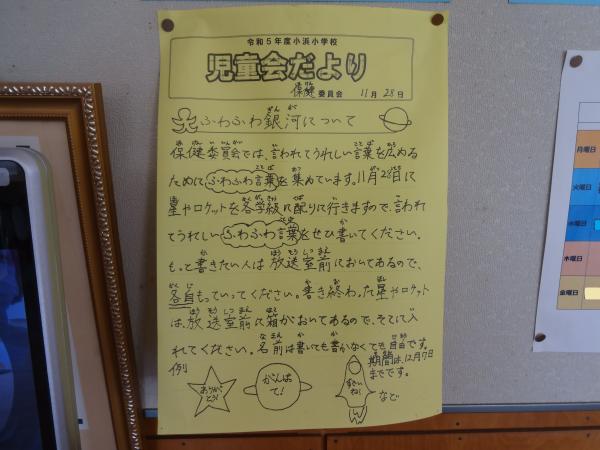 令和5年度小浜小学校
児童会だより
保健委員会 11月28日
ふわふわ銀河について
保健委員会では、言われてうれしい言葉を広める
ために ふわふわ言葉を集めています。11月28日に
星やロケットを各学級に配りに行きますので、言われ
てうれしい ふわふわ言葉をぜひ書いてください。
もっと書きたい人は 放送室前においてあるので、
各自もっていってください。書き終わった星やロケット
は、放送室前に箱がおいてあるので、そこに入
れてください。名前は書いても書かなくても自由です。
期間は、12月7日
までです。
例
ありがとう!
がんばって!
すごいね!
など
月曜日
火曜日
水曜日
木曜日
金曜日